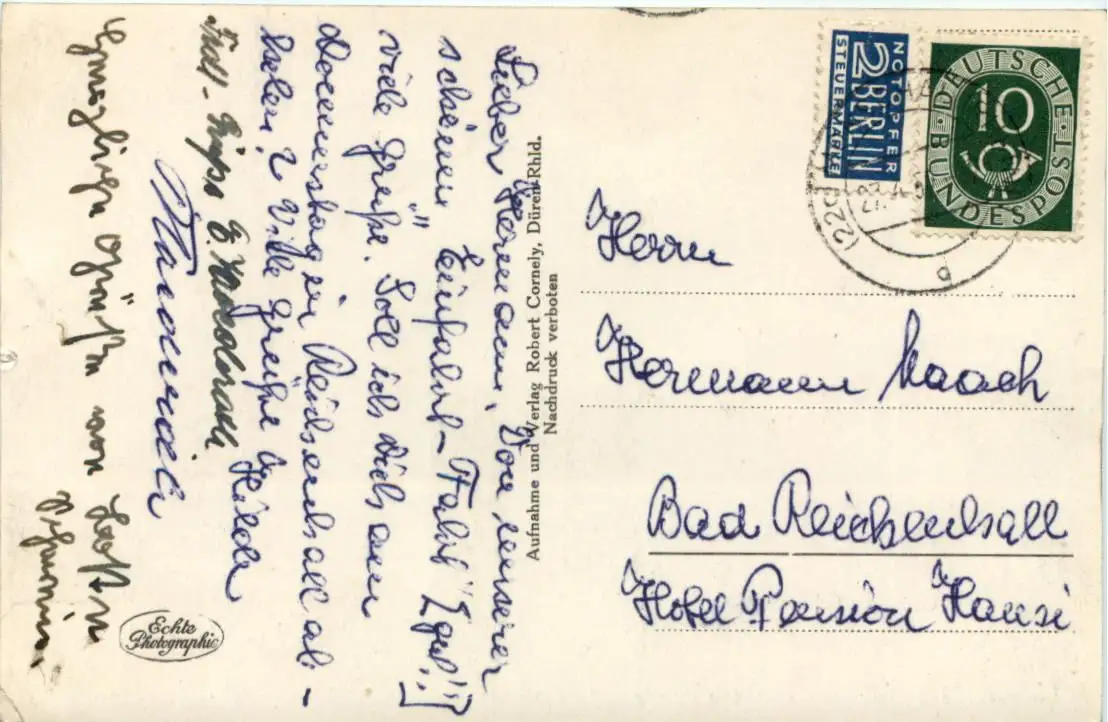 Lieber Hermann, Von unserer
schönen "Einfahrt-Fahrt"
viele Grüße. Soll ich Dich am
Donnerstag in Reichenhall ab-
holen? Viele Grüße Hilde
Herzliche Grüße von
Aufnahme und Verlag Robert Cornely, Düren-Rhld.
Nachdruck verboten
Echte
Photographie
NOTOPFER
2 BERLIN
STEUERMARKE
DEUTSCHE
BUNDESPOST
10
(22
Herrn
Hermann
Bad Reichenhall
Hotel Pension Hansi